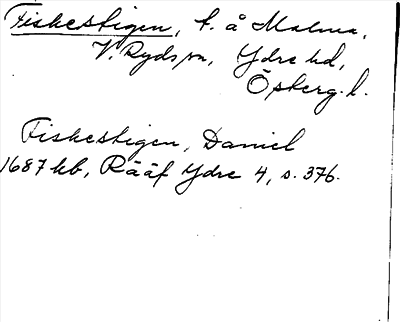 Fiskestigen, t. å Malma,
V. Ryds sn, Ydre hd,
Östergl.
Fiskestigen, Daniel
1687 kb, Rääf Ydre 4, s. 376.